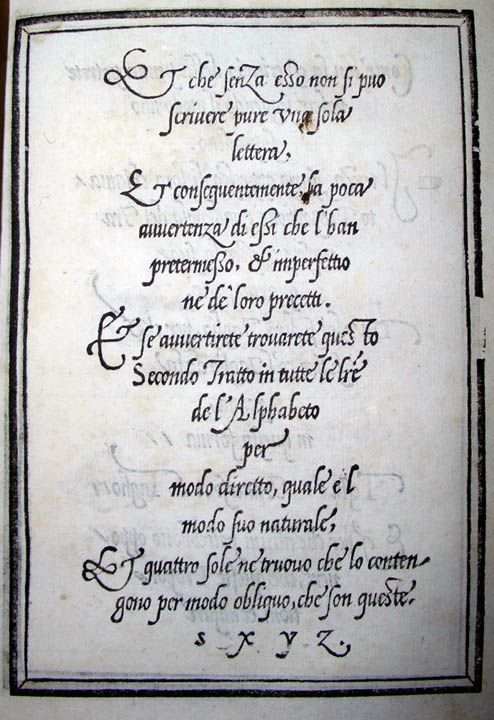 Et che senza esso non si puo
scrivere pure una sola
lettera,
Et consequentemente, la poca
avvertenza di essi che l'han
pretermesso, & imperfettio
ne de' loro precetti.
Et se avvertirete trovarete questo
Secondo Tratto in tutte le lrẽ
de l'Alphabeto
per
modo diretto, quale e l
modo suo naturale,
Et quattro sole ne truovo che lo conten-
gono per modo obliquo, che son queste.
s x y z.